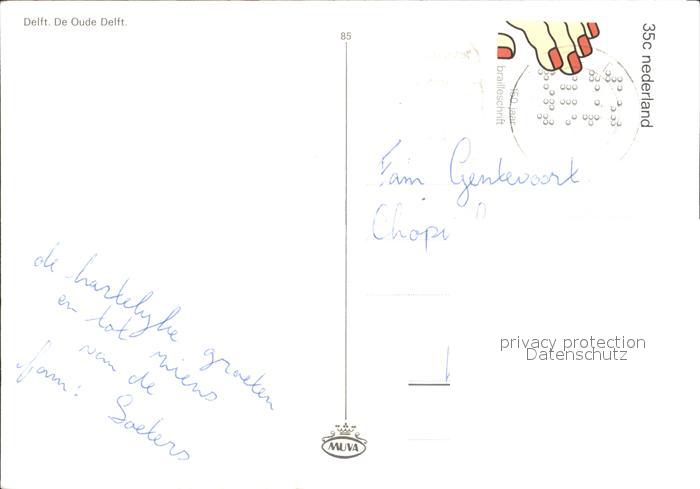 Delft. De Oude Delft.
85
35c nederland
150 jaar
brailleschrift
Fam Genkevoort.
Chopi
privacy protection
Datenschutz
de hartelijke groeten
en tot wiens
van de
fam: Soeters
MUVA